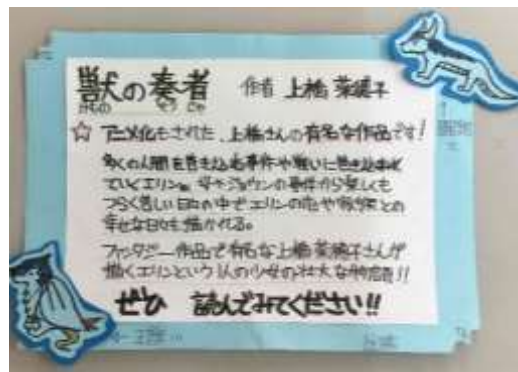 獣の奏者 作者 上橋菜穂子
けもの そうじゃ
☆ アニメ化もされた、上橋さんの有名な作品です!
多くの人間を巻き込む事件や戦いに巻き込まれ
ていくエリン。 ジョウンの事件から楽しくも
つらく苦しい日々の中でエリンの恋や との
幸せな日々も描かれる。
ファンタジー作品で有名な上橋菜穂子さんが
描くエリンという1人の少女の壮大な物語!!
ぜひ 読んでみてください!!